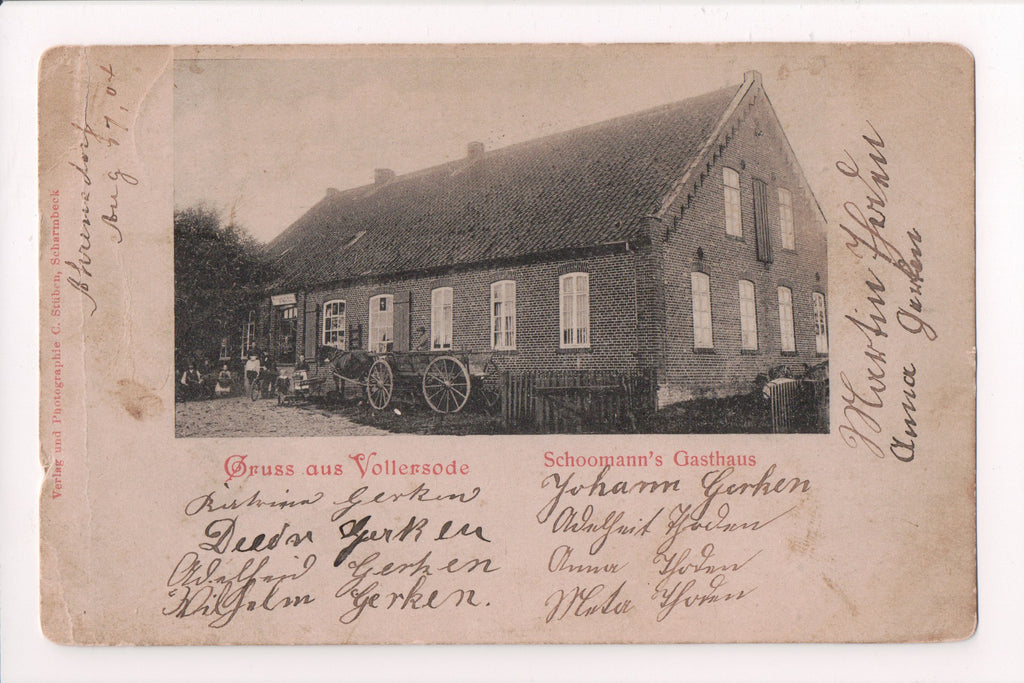 Ahrensdorf
Aug 17, 04
Verlag und Photographie C. Stüben, Scharmbeck
Gruss aus Vollersode
Schoomann's Gasthaus
Katrina Gerken
Gerken
Adelheid Gerken
Wilhelm Gerken.
Johann Gerken
Adelheit Thoden
Anna Thoden
Meta Thoden
Martin Thoden
Anna Gerken